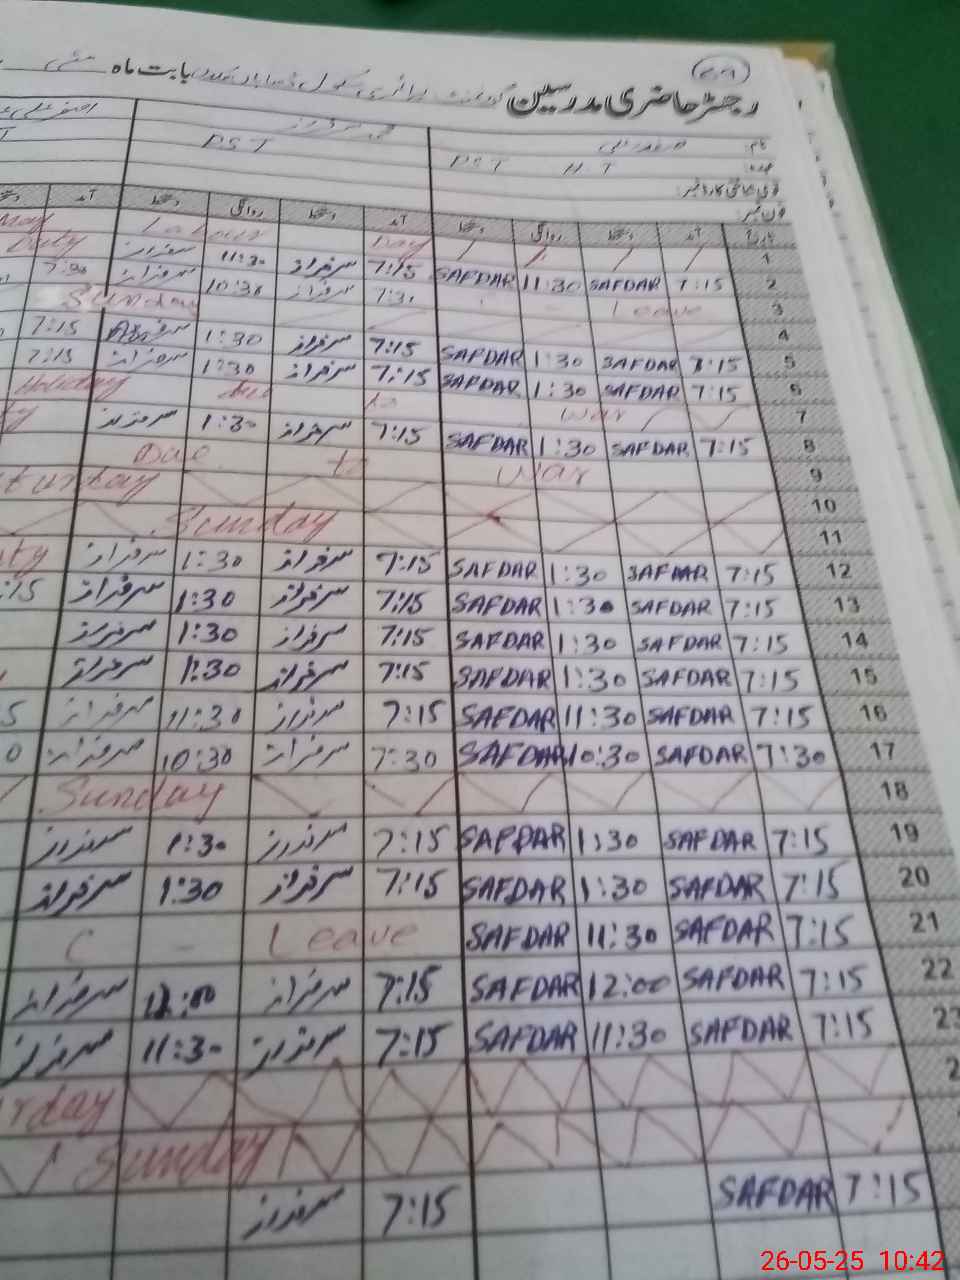 رجسٹر حاضری مدرسین گورنمنٹ پرائمری سکول بابت ماہ مئی
نام:
عہدہ: PST H.T PST
قومی شناختی کارڈ نمبر:
فون نمبر:
تاریخ آمد دستخط روانگی دستخط آمد دستخط روانگی دستخط آمد
1 Day Labour May
2 7:15 SAFDAR 11:30 SAFDAR 7:15 سرفراز 11:30 سرفراز Duty
3 Leave 7:30 سرفراز 10:30 سرفراز 7:30
4 Sunday
5 7:15 SAFDAR 1:30 SAFDAR 7:15 سرفراز 1:30 سرفراز 7:15
6 7:15 SAFDAR 1:30 SAFDAR 7:15 سرفراز 1:30 سرفراز 7:15
7 Holiday due to war
8 7:15 SAFDAR 1:30 SAFDAR 7:15 سرفراز 1:30 سرفراز
9 Due to war
10 turday
11 Sunday
12 7:15 SAFDAR 1:30 SAFDAR 7:15 سرفراز 1:30 سرفراز ty
13 7:15 SAFDAR 1:30 SAFDAR 7:15 سرفراز 1:30 سرفراز :15
14 7:15 SAFDAR 1:30 SAFDAR 7:15 سرفراز 1:30 سرفراز
15 7:15 SAFDAR 1:30 SAFDAR 7:15 سرفراز 1:30 سرفراز
16 7:15 SAFDAR 11:30 SAFDAR 7:15 سرفراز 11:30 سرفراز 5
17 7:30 SAFDAR 10:30 SAFDAR 7:30 سرفراز 10:30 سرفراز 0
18 Sunday
19 7:15 SAFDAR 1:30 SAFDAR 7:15 سرفراز 1:30 سرفراز
20 7:15 SAFDAR 1:30 SAFDAR 7:15 سرفراز 1:30 سرفراز
21 7:15 SAFDAR 11:30 SAFDAR C - Leave
22 7:15 SAFDAR 12:00 SAFDAR 7:15 سرفراز 12:00 سرفراز
23 7:15 SAFDAR 11:30 SAFDAR 7:15 سرفراز 11:30 سرفراز
2 rday
Sunday
7:15 SAFDAR 7:15 سرفراز
26-05-25 10:42